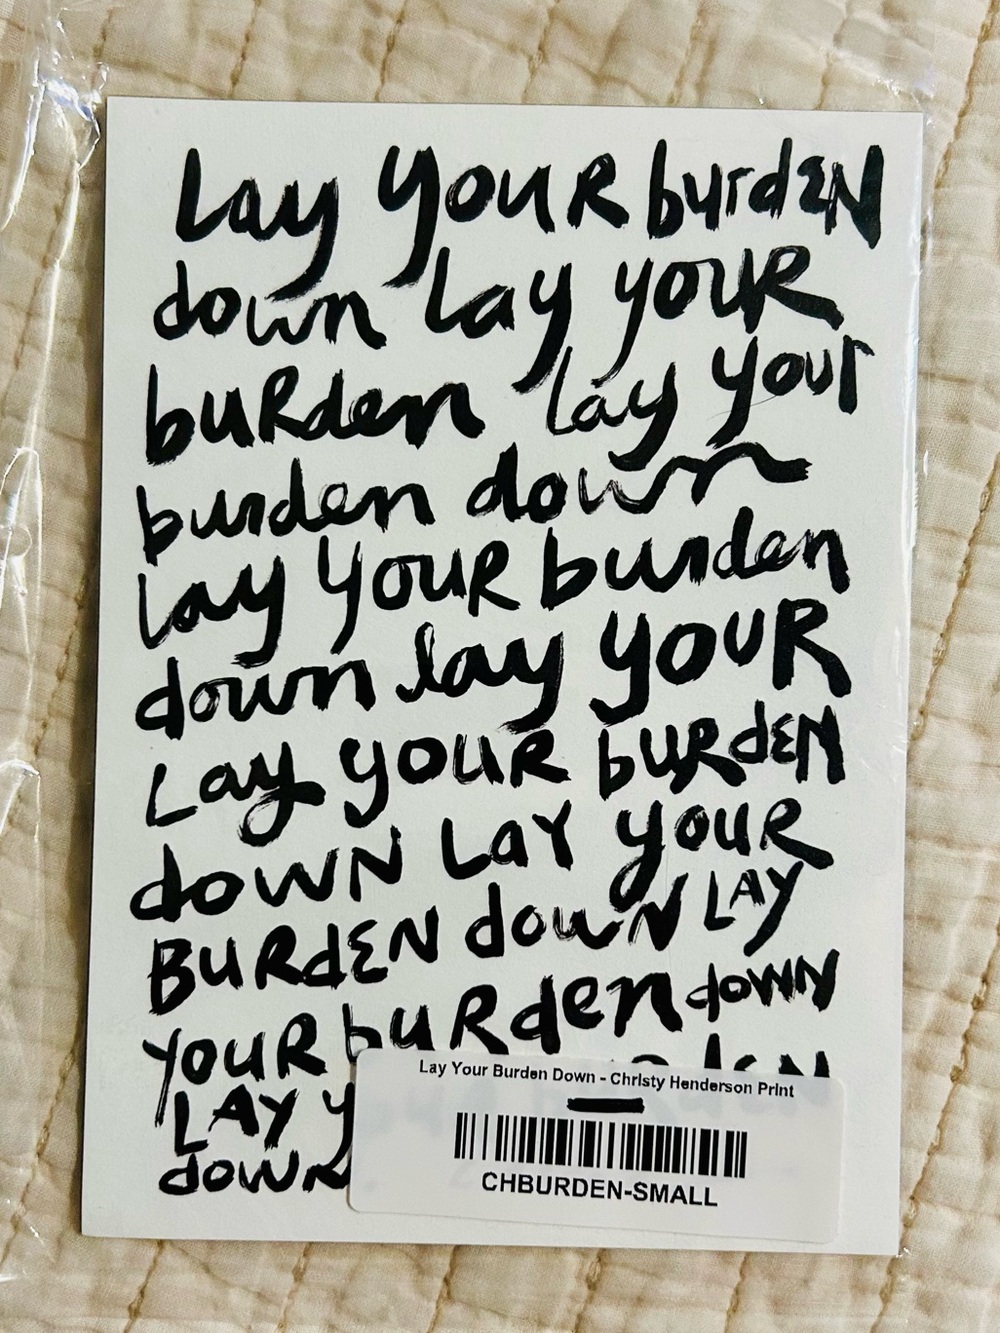 Lay youR burdEN
down lay youR
buRden lay your
burden down
lay youR burden
down lay youR
Lay youR buRdEN
dOWN LaY youR
BuRdEN dowN LAY
youR buRden dOWN
LAY
down
Lay Your Burden Down - Christy Henderson Print
CHBURDEN-SMALL